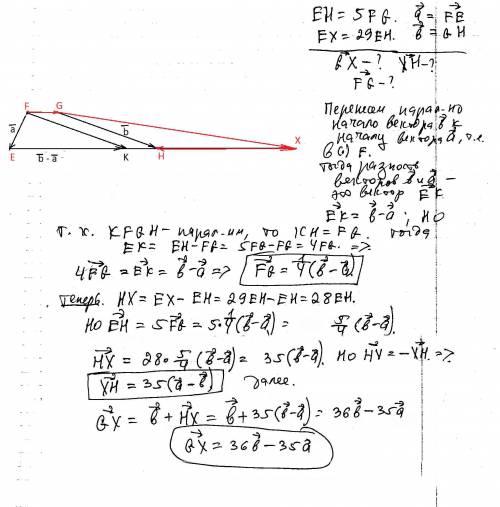 EH = 5FG. a⃗ = F⃗E
EX = 29EH. b⃗ = G⃗H
G⃗X - ? X⃗H - ?
F⃗G - ?
F G a b X
E b - a K H
начало вектора b⃗ к
началу вектора a⃗, т.е.
в (·) F.
тогда разность
векторов b⃗ и a⃗ -
это вектор E⃗K
E⃗K = b⃗ - a⃗; НО
Т. к. KFGH - парал-м, то KH = FG. тогда
EK = EH - FG = 5FG - FG = 4FG. =>
4F⃗G = E⃗K = b⃗ - a⃗ => F⃗G = 1/4(b⃗ - a⃗)
Теперь. HX = EX - EH = 29EH - EH = 28EH.
Но E⃗H = 5F⃗G = 5·1/4(b⃗ - a⃗) = 5/4(b⃗ - a⃗).
H⃗X = 28·5/4(b⃗ - a⃗) = 35(b⃗ - a⃗). Но H⃗X = -X⃗H. =>
X⃗H = 35(a⃗ - b⃗) далее.
G⃗X = b⃗ + H⃗X = b⃗ + 35(b⃗ - a⃗) = 36b⃗ - 35a⃗
G⃗X = 36b⃗ - 35a⃗